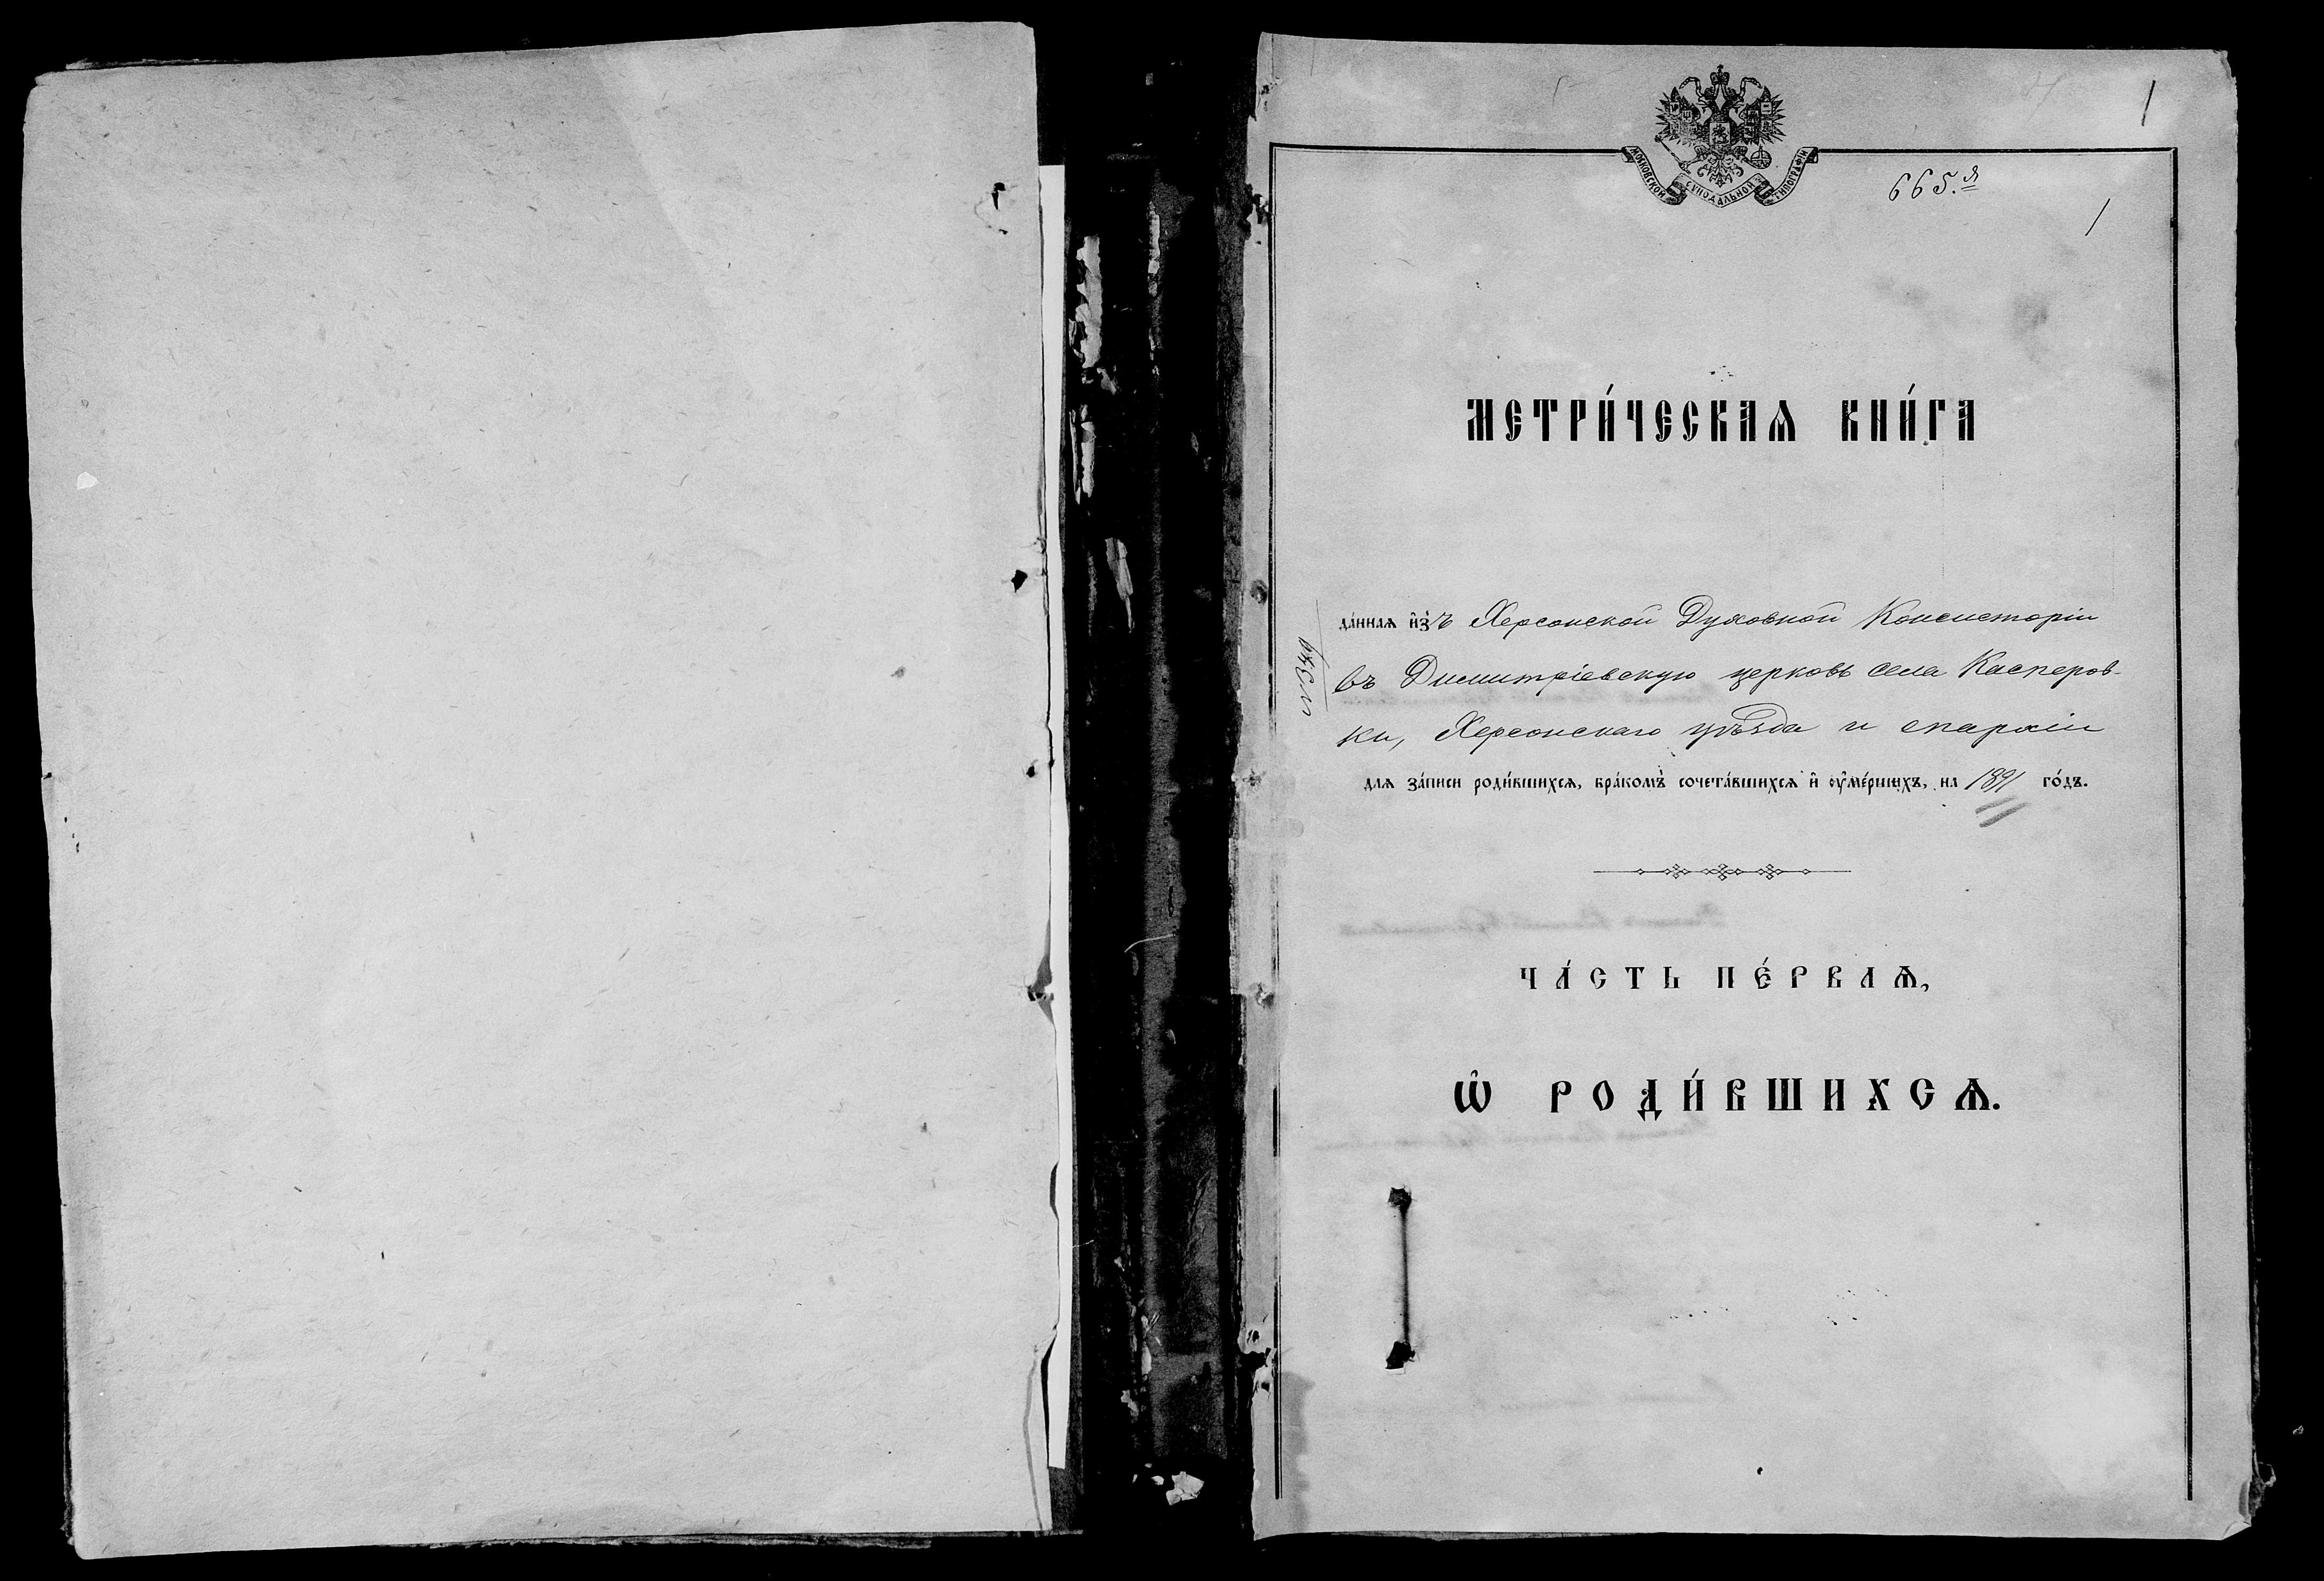 1
МОСКОВСКОЙ СУНОДАЛЬНОЙ ТИПОГРАФІИ
665.я
1
МЕТРИ́ЧЕСКАѦ КНИ́ГА
да́ннаѧ и҆зъ Херсонской Духовной Консисторіи
въ Димитріевскую церковь села Касперов-
ки, Херсонскаго уѣзда и епархіи
длѧ за́писи роди́вшихсѧ, бра́комъ сочета́вшихсѧ и҆ ѹ҆ме́ршихъ, на 1891 го́дъ.
ЧА́СТЬ ПЕ́РВАѦ,
Ѡ҆ РОДИ́ВШИХСѦ.